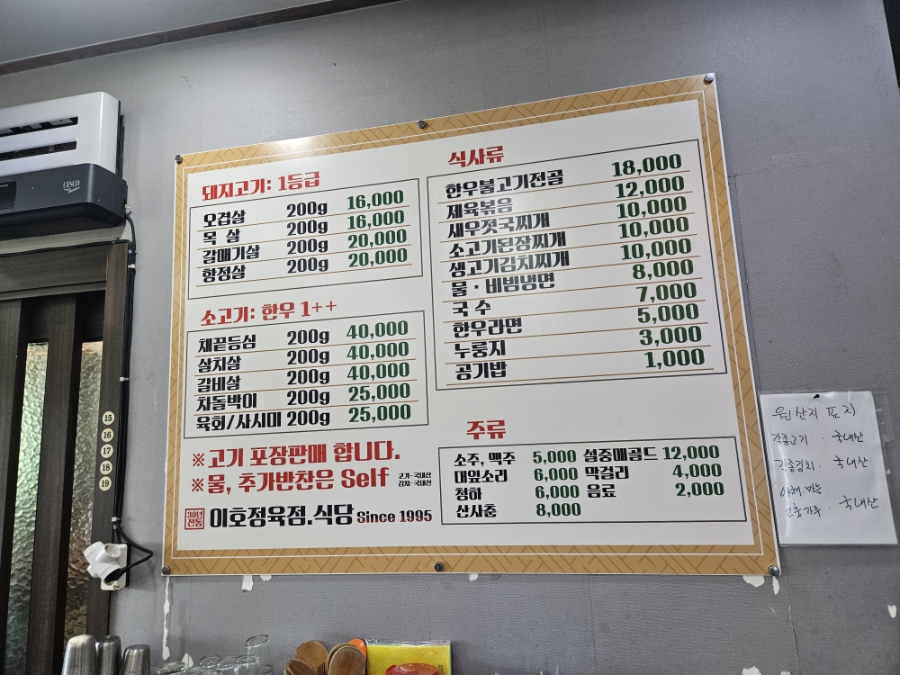 돼지고기: 1등급
오겹살 200g 16,000
목 살 200g 16,000
갈매기살 200g 20,000
항정살 200g 20,000
소고기: 한우 1++
채끝등심 200g 40,000
살치살 200g 40,000
갈비살 200g 40,000
차돌박이 200g 25,000
육회/사시미 200g 25,000
※고기 포장판매 합니다.
※물, 추가반찬은 Self 고기-국내산
김치-국내산
30년
전통
이호정육점,식당 Since 1995
식사류
한우불고기전골 18,000
제육볶음 12,000
새우젓국찌개 10,000
소고기된장찌개 10,000
생고기김치찌개 10,000
물·비빔냉면 8,000
국 수 7,000
한우라면 5,000
누룽지 3,000
공기밥 1,000
주류
소주, 맥주 5,000 설중매골드 12,000
대잎소리 6,000 막걸리 4,000
청하 6,000 음료 2,000
산사춘 8,000
원산지 표지
각종고기 · 국내산
각종김치 · 국내산
야채,마늘
고춧가루 · 국내산
CISCO
15
16
17
18
19